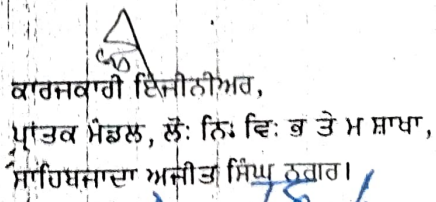 ਕਾਰਜਕਾਰੀ ਇੰਜੀਨੀਅਰ,
ਪ੍ਰਾਂਤਕ ਮੰਡਲ, ਲੋ: ਨਿ: ਵਿ: ਭ ਤੇ ਮ ਸ਼ਾਖਾ,
ਸਾਹਿਬਜਾਦਾ ਅਜੀਤ ਸਿੰਘ ਨਗਰ।